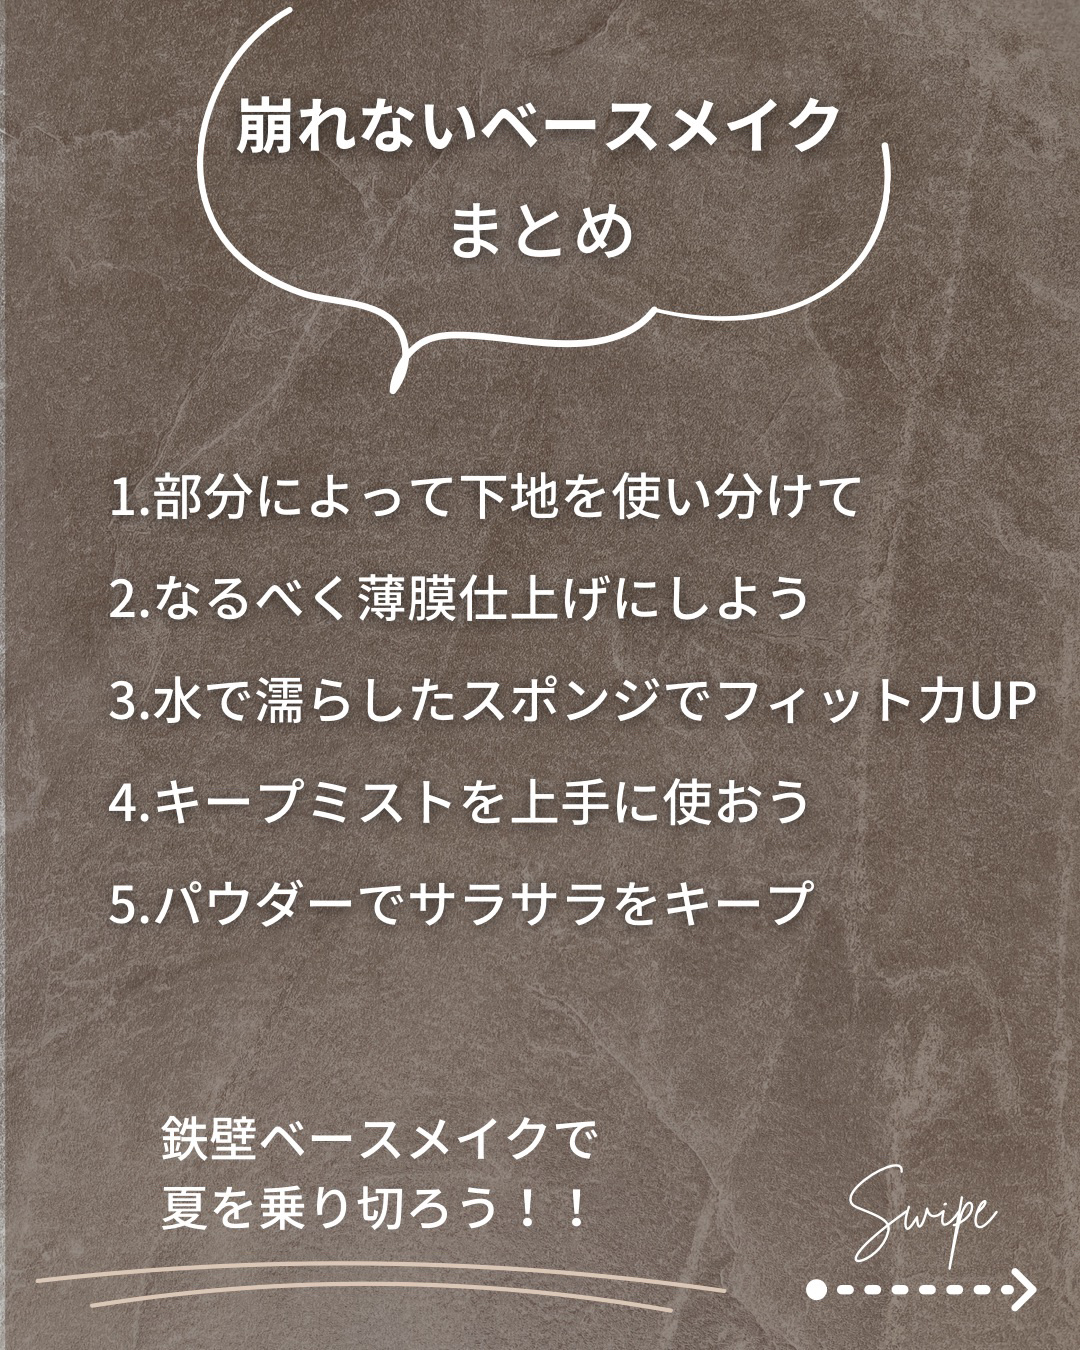 崩れないベースメイク
まとめ
1.部分によって下地を使い分けて
2.なるべく薄膜仕上げにしよう
3.水で濡らしたスポンジでフィット力UP
4.キープミストを上手に使おう
5.パウダーでサラサラをキープ
鉄壁ベースメイクで
夏を乗り切ろう！！
Swipe